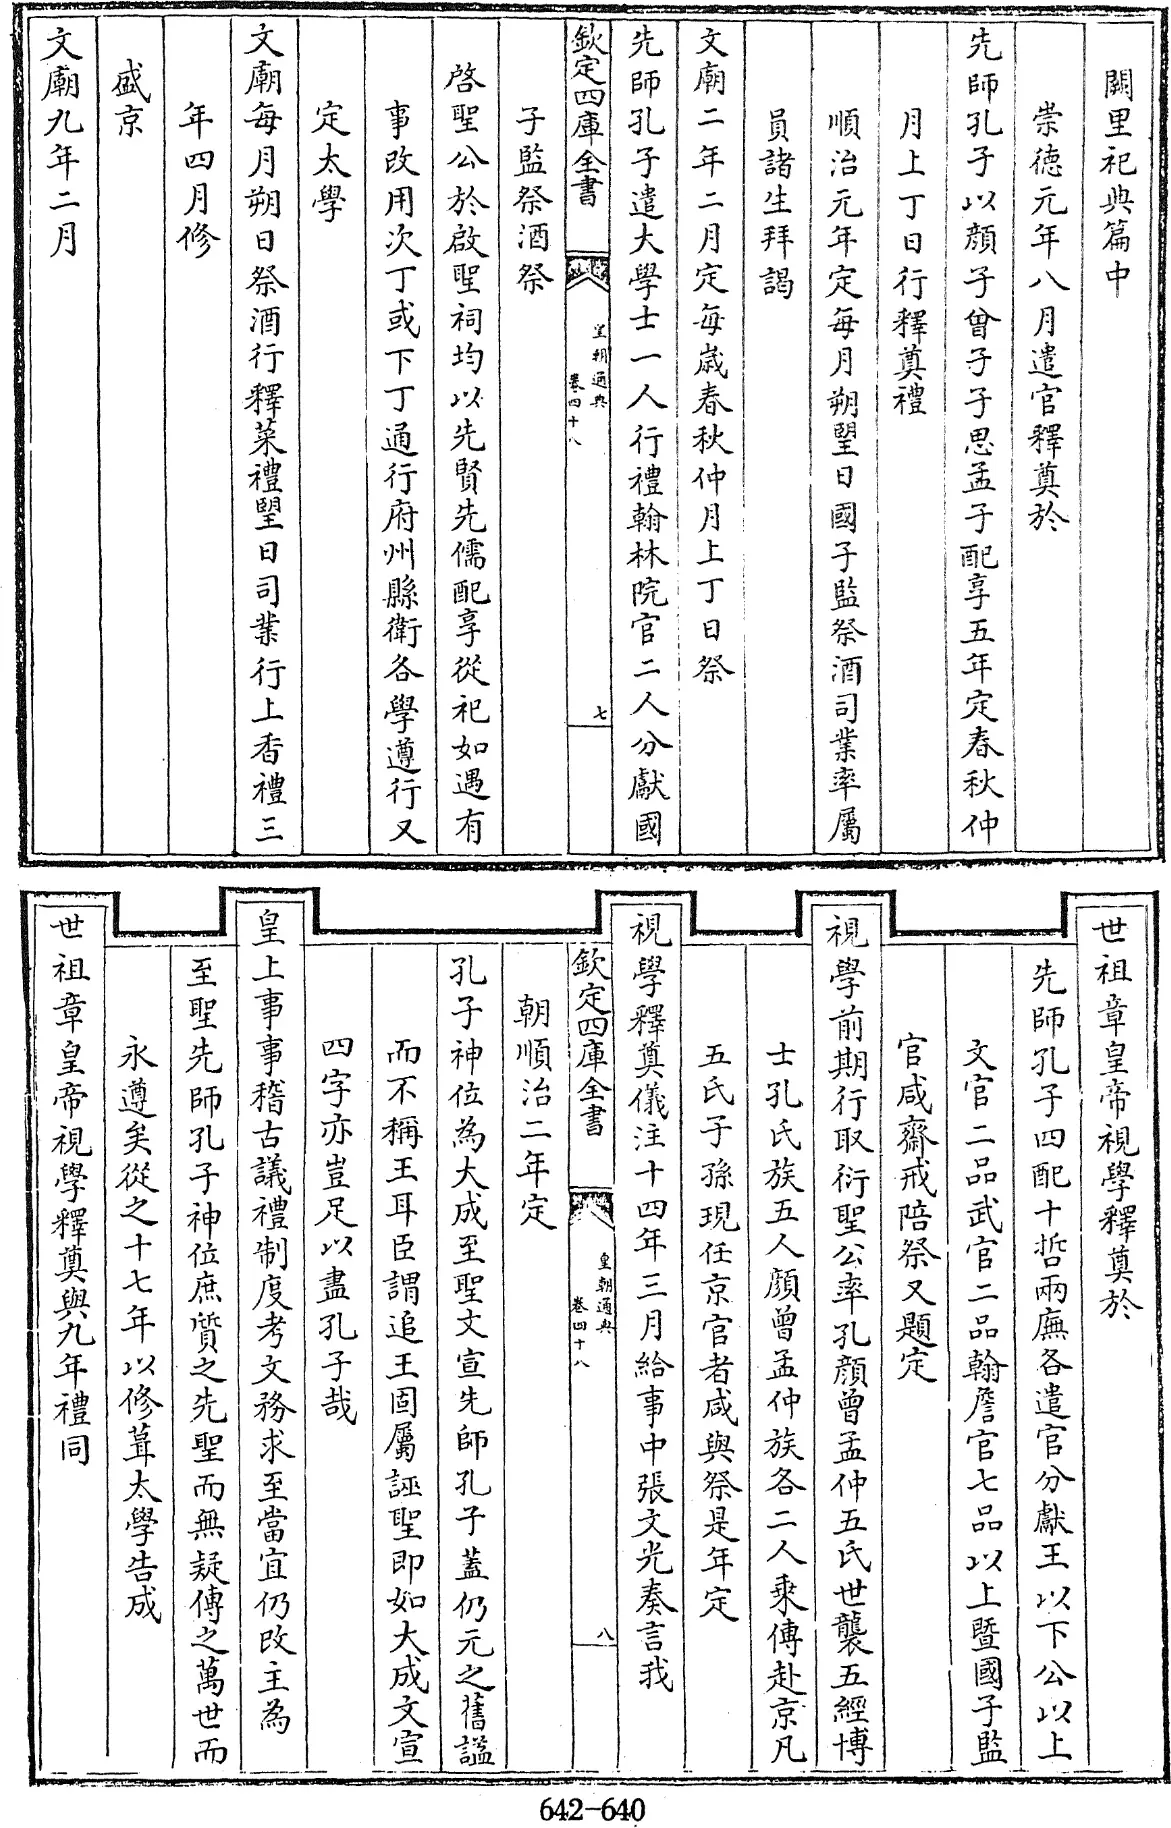 闕里祀典篇中
崇徳元年八月遣官釋奠於
先師孔子以顔子曾子子思孟子配享五年定春秋仲
月上丁日行釋奠禮
順治元年定每月朔望日國子監祭酒司業率屬
員諸生拜謁
文廟二年二月定每歳春秋仲月上丁日祭
先師孔子遣大學士一人行禮翰林院官二人分獻國
欽定四庫全書
皇朝通典
卷四十八
七
子監祭酒祭
啓聖公於啟聖祠均以先賢先儒配享從祀如遇有
事改用次丁或下丁通行府州縣衛各學遵行又
定太學
文廟每月朔日祭酒行釋菜禮望日司業行上香禮三
年四月修
盛京
文廟九年二月
世祖章皇帝視學釋奠於
先師孔子四配十哲兩廡各遣官分獻王以下公以上
文官二品武官二品翰詹官七品以上暨國子監
官咸齋戒陪祭又題定
視學前期行取衍聖公率孔顔曾孟仲五氏世襲五經博
士孔氏族五人顔曾孟仲族各二人乘傳赴京凡
五氏子孫現任京官者咸與祭是年定
視學釋奠儀注十四年三月給事中張文光奏言我
欽定四庫全書
皇朝通典
卷四十八
八
朝順治二年定
孔子神位為大成至聖文宣先師孔子蓋仍元之舊諡
而不稱王耳臣謂追王固屬誣聖即如大成文宣
四字亦豈足以盡孔子哉
皇上事事稽古議禮制度考文務求至當宜仍改主為
至聖先師孔子神位庶質之先聖而無疑傳之萬世而
永遵矣從之十七年以修葺太學告成
世祖章皇帝視學釋奠與九年禮同
642-640